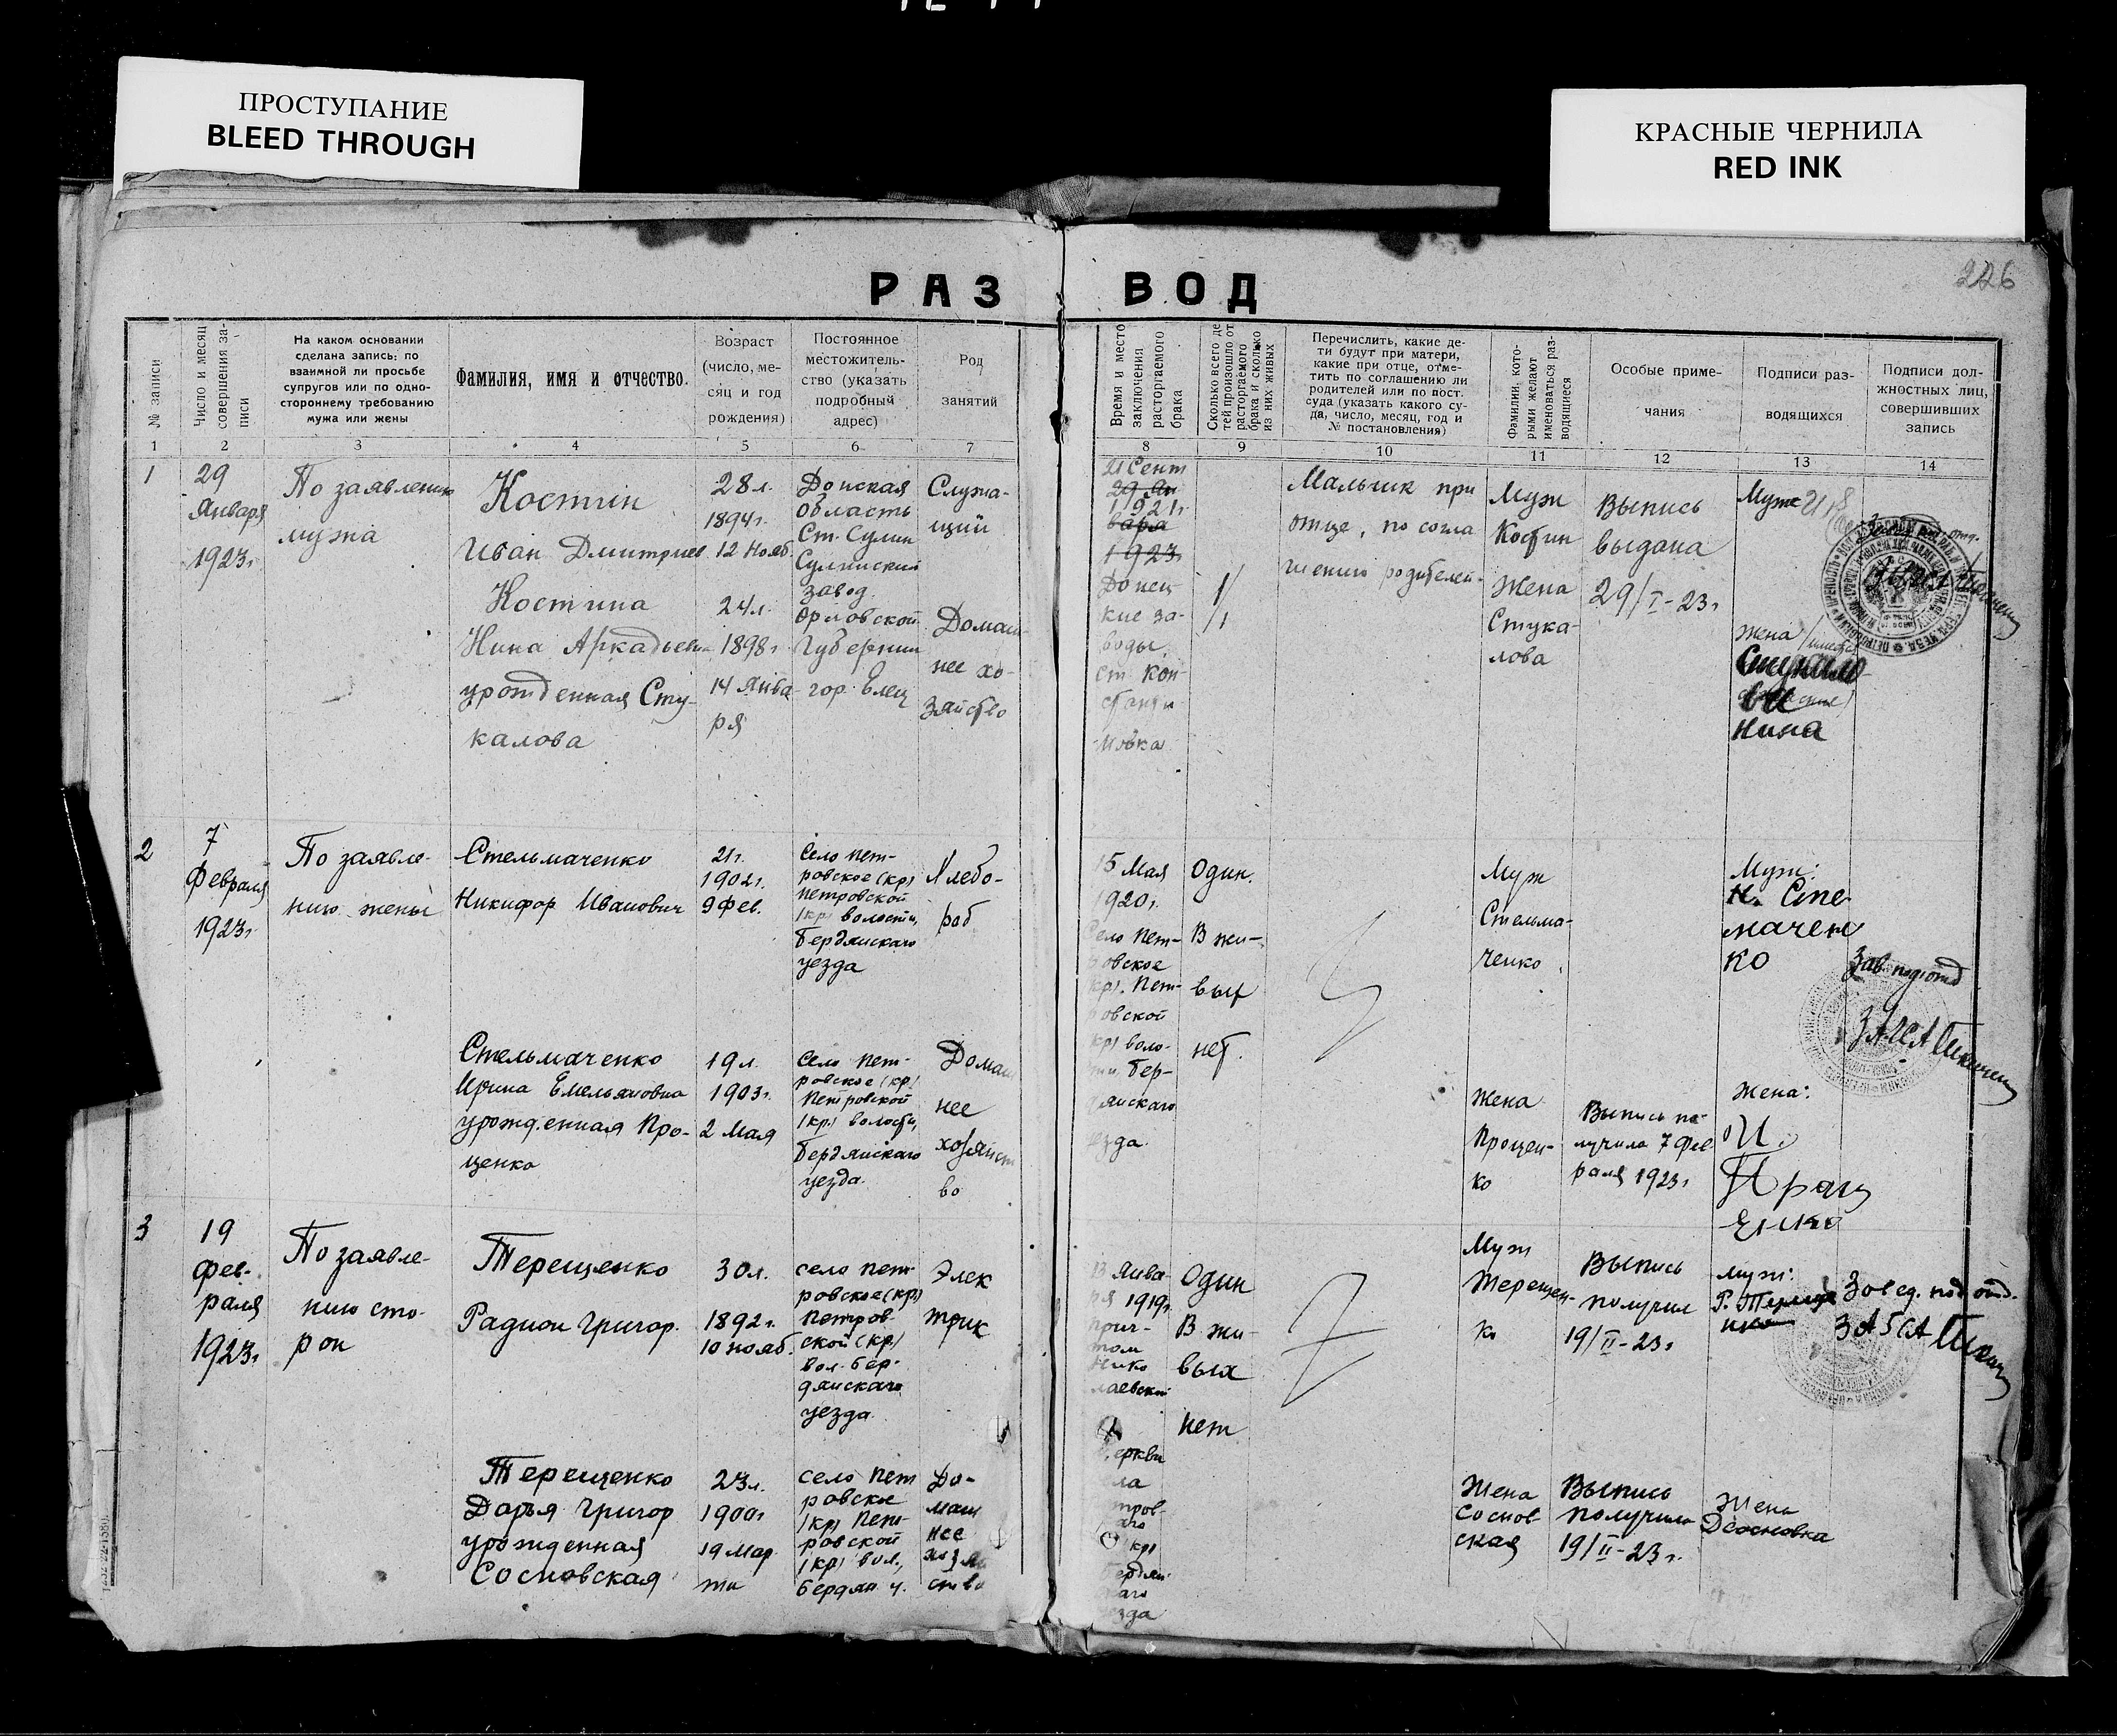 ПРОСТУПАНИЕ
BLEED THROUGH
КРАСНЫЕ ЧЕРНИЛА
RED INK
226
РАЗВОД
№ записи
Число и месяц
совершения за-
писи
На каком основании
сделана запись: по
взаимной ли просьбе
супругов или по одно-
стороннему требованию
мужа или жены
Фамилия, имя и отчество.
Возраст
(число, ме-
сяц и год
рождения)
Постоянное
местожитель-
ство (указать
подробный
адрес)
Род
занятий
Время и место
заключения
расторгаемого
брака
Сколько всего де
тей произошло от
расторгаемого
брака и сколько
из них живых
Перечислить, какие де-
ти будут при матери,
какие при отце, отме-
тить по соглашению ли
родителей или по пост.
суда (указать какого су-
да, число, месяц, год и
№ постановления)
Фамилии, кото-
рыми желают
именоваться раз-
водящиеся
Особые приме-
чания
Подписи раз-
водящихся
Подписи дол-
жностных лиц,
совершивших
запись
1 2 3 4 5 6 7 8 9 10 11 12 13 14
1
29
Января
1923г
По заявлению
мужа
Костин
Иван Дмитриев
Костина
Нина Аркадьевн
урожденная Сту-
калова
28л.
1894г.
12 Нояб.
24л.
1898г
14 Янва-
ря
Донская
область
Ст. Сулин
Сулинский
завод.
Орловской
Губернии
гор. Елец
Служа-
щий
Домаш
нее хо-
зяйство
21 Сент
29 Ян
1921г
варя
1923
Донец
кие за-
воды
ст. Кон-
станти-
новка
1/
/1
Мальчик при
отце, по согла
шению родителей.
Муж
Костин
Жена
Стука-
лова
Выпись
выдана
29/I-23г
Муж
Жена
Нина
2
7
Февраля
1923г
По заявле-
нию жены
Стельмаченко
Никифор Иванович
21г.
1902г.
9 Фев.
Село Пет-
ровское (кр)
Петровской
(кр) волости,
Бердянскаго
уезда
Хлебо-
роб
Стельмаченко
Ирина Емельяновна
урожденная Про-
ценко
19л.
1903г.
2 Мая
Село Пет-
ровское (кр)
Петровской
(кр) волости,
Бердянскаго
уезда.
Домаш
нее
хозяйст
во
15 Мая
1920г.
Село Пет-
ровское
кр). Пет-
ровской
(кр) воло-
сти, Бер-
дянскаго
уезда.
Один.
В жи-
вых
нет.
Муж
Стельма-
ченко
Жена
Процен-
ко
Выпись по-
лучила 7 Фев
раля 1923г
Муж:
Н. Сте
мачен
ко
Жена:
И.
Зав подотд
ЗАГСА
3
19
Фев-
раля
1923г
По заявле-
нию сто-
рон
Терещенко
Радион Григор.
30л.
1892г.
10 нояб.
село Пет
ровское (кр)
Петров-
ской (кр)
вол. Бер-
дянскаго
уезда.
Элек
трик
Терещенко
Дарья Григор
урожденная
Сосновская
23л.
1900г
19 Мар
та
село Пет
ровское
(кр) Пет-
ровской
(кр) вол.,
Бердян. у.
До-
маш
нее
хозяй
ство
13 Янва-
ря 1919г.
Прич-
том
Нико
лаевской
церкви
села
Петров-
скаго
(кр)
Бердян-
скаго
уезда
Один
В жи-
вых
нет
Муж
Терещен-
ко
Жена
Соснов-
ская
Выпись
получил
19/II-23г
Выпись
получила
19/II-23г.
муж:
Р. Тереще
нко
Жена
Д Сосновка
Завед. подотд.
ЗАГСА